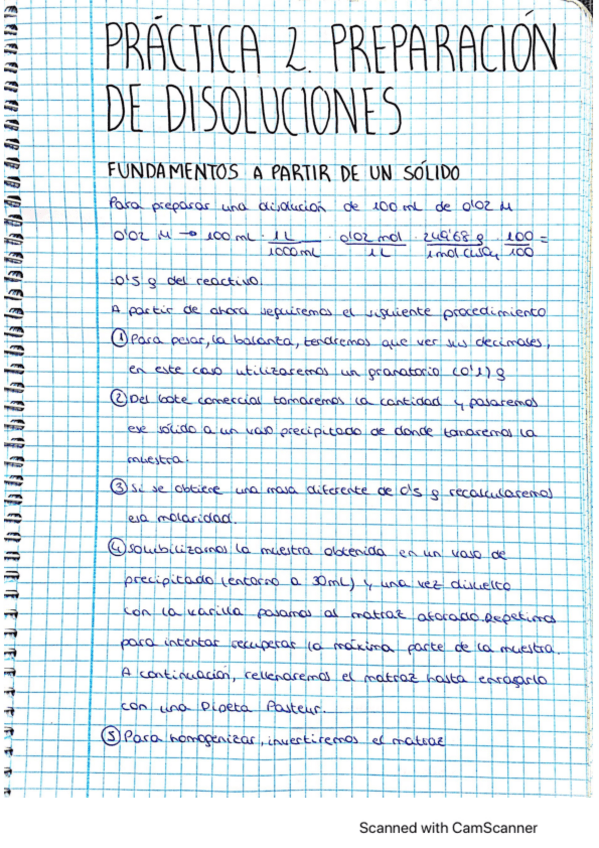 PRÁCTICA 2. PREPARACIÓN
DE DISOLUCIONES
FUNDAMENTOS A PARTIR DE UN SÓLIDO
Para preparar una disolución de 100 mL de 0'02 M
0'02 M → 100 mL · 1L / 1000 mL · 0'02 mol / 1L · 249'68 g / 1 mol CuSO₄ · 100 / 100 =
= 0'5 g del reactivo.
A partir de ahora seguiremos el siguiente procedimiento
① Para pesar, la balanza, tendremos que ver sus decimales,
en este caso utilizaremos un granatorio (0'1) g
② Del bote comercial tomaremos la cantidad y pasaremos
ese sólido a un vaso precipitado de donde tomaremos la
muestra.
③ Si se obtiene una masa diferente de 0'5 g recalcularemos
esa molaridad.
④ Solubilizamos la muestra obtenida en un vaso de
precipitado (entorno a 30mL) y una vez disuelto
con la varilla pasamos al matraz aforado. Repetimos
para intentar recuperar la máxima parte de la muestra.
A continuación, rellenaremos el matraz hasta enrasarlo
con una Pipeta Pasteur.
⑤ Para homogenizar, invertiremos el matraz
Scanned with CamScanner